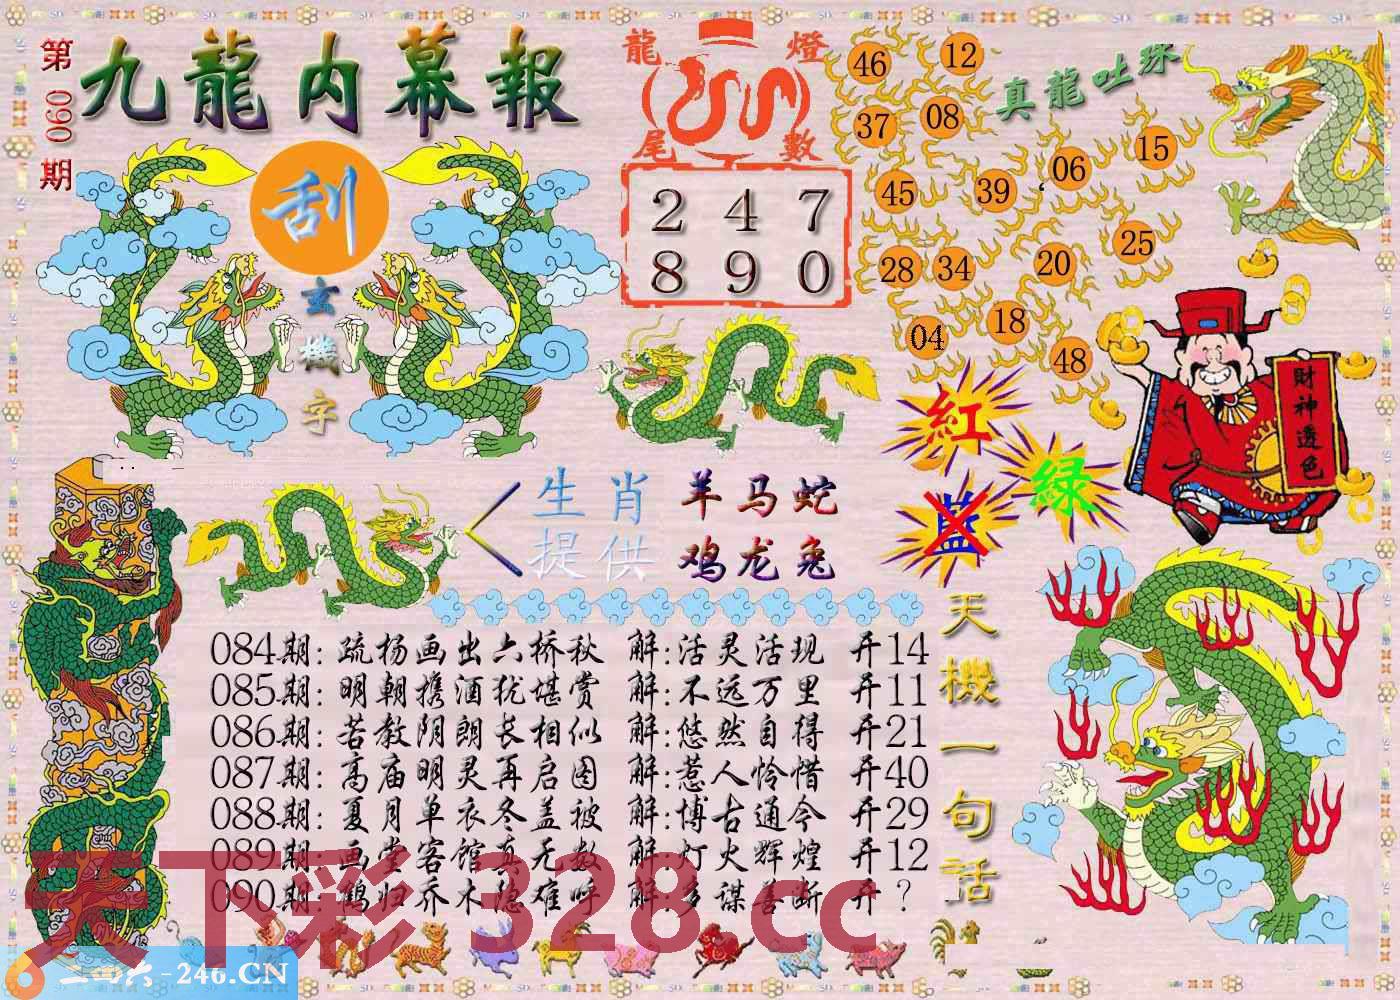 第090期
九龍内幕報
刮
玄機字
龍燈
尾數
2 4 7
8 9 0
真龍吐珠
46 12
37 08
45 39 06 15
28 34 20 25
04 18 48
財神透色
紅
绿
蓝
生肖 羊马蛇
提供 鸡龙兔
天機一句話
084期: 疏杨画出六桥秋 解:活灵活现 开14
085期: 明朝携酒犹堪赏 解:不远万里 开11
086期: 若教阴朗长相似 解:悠然自得 开21
087期: 高庙明灵再启图 解:惹人怜惜 开40
088期: 夏月单衣冬盖被 解:博古通今 开29
089期: 画堂客馆真无数 解:灯火辉煌 开12
090期: 鹤归乔木隐难呼 解:多谋善断 开?
天下彩 328.cc
二四六-246.CN